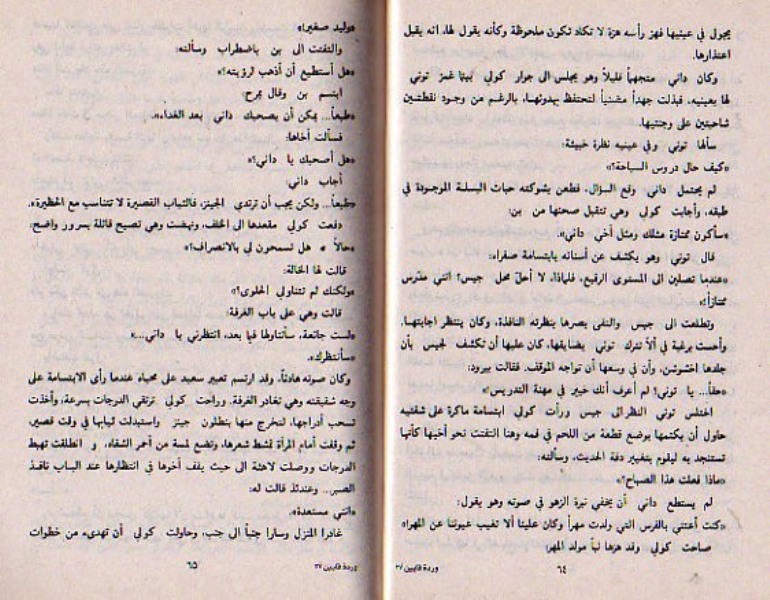 يجول في عينيها فهز رأسه هزة لا تكاد تكون ملحوظة وكأنه يقول لها، انه يقبل
اعتذارها.
وكان داني متجهماً قليلاً وهو يجلس الى جوار كولي بينما غمز توني
لها بعينيه، فبذلت جهداً مضنياً لتحتفظ بهدوئها، بالرغم من وجود نقطتين
شاحبتين على وجنتيها.
سألها توني وفي عينيه نظرة خبيثة:
«كيف حال دروس السباحة؟»
لم يحتمل داني وقع السؤال، فطعن بشوكته حبات البسلة الموجودة في
طبقه، وأجابت كولي وهي تتقبل صحتها من بن:
«سأكون ممتازة مثلك ومثل أخي داني».
قال توني وهو يكشف عن أسنانه بابتسامة صفراء:
«عندما تصلين الى المستوى الرفيع، فلماذا، لا أحل محل جيس؟ انني مدرس
ممتاز!»
وتطلعت الى جيس والتقى بصرها بنظرته النافذة، وكان ينتظر اجابتها.
وأحست برغبة في ألا تترك توني يضايقها، كان عليها أن تكشف لجيس بأن
جلدها اخشوشن، وأن في وسعها أن تواجه الموقف. فقالت ببرود:
«حقاً... يا توني! لم أعرف أنك خبير في مهنة التدريس».
اختلس توني النظر الى جيس ورأت كولي ابتسامة ماكرة على شفتيه
حاول أن يكتمها بوضع قطعة من اللحم في فمه وهنا التفتت نحو أخيها كأنها
تستنجد به ليقوم بتغيير دفة الحديث، وسألته:
«ماذا فعلت هذا الصباح؟»
لم يستطع داني أن يخفي نبرة الزهو في صوته وهو يقول:
«كنت أعتني بالفرس التي ولدت مهراً وكان علينا ألا تغيب عيوننا عن المهر!»
صاحت كولي وقد هزها نبأ مولد المهر:
٦٤
وردة قايين ٣٧
«وليد صغير!»
والتفتت الى بن باضطراب وسألته:
«هل أستطيع أن أذهب لرؤيته؟»
ابتسم بن وقال بمرح:
«طبعاً... يمكن أن يصحبك داني بعد الغداء».
فسألت أخاها:
«هل أصحبك يا داني؟»
أجاب داني:
«طبعاً... ولكن يجب أن ترتدي الجينز، فالثياب القصيرة لا تتناسب مع الحظيرة».
دفعت كولي مقعدها الى الخلف، ونهضت وهي تصيح قائلة بسرور واضح:
«حالاً هل تسمحون لي بالانصراف؟»
قالت لها الخالة:
«ولكنك لم تتناولي الحلوى؟»
قالت وهي على باب الغرفة:
«لست جائعة، سأتناولها فيما بعد، انتظرني يا داني...»
«سأنتظرك».
وكان صوته هادئاً، وقد ارتسم تعبير سعيد على محياه عندما رأى الابتسامة على
وجه شقيقته وهي تغادر الغرفة. وراحت كولي ترتقي الدرجات بسرعة، وأخذت
تسحب أدراجها، لتخرج منها بنطلون جينز واستبدلت ثيابها في وقت قصير،
ثم وقفت أمام المرآة تمشط شعرها، وتضع لمسة من أحمر الشفاه، و انطلقت تهبط
الدرجات ووصلت لاهثة الى حيث يقف أخوها في انتظارها عند الباب نافذ
الصبر.. وعندئذ قالت له:
«انني مستعدة».
غادرا المنزل وسارا جنباً الى جنب، وحاولت كولي أن تهدىء من خطوات
٦٥
وردة قايين ٣٧